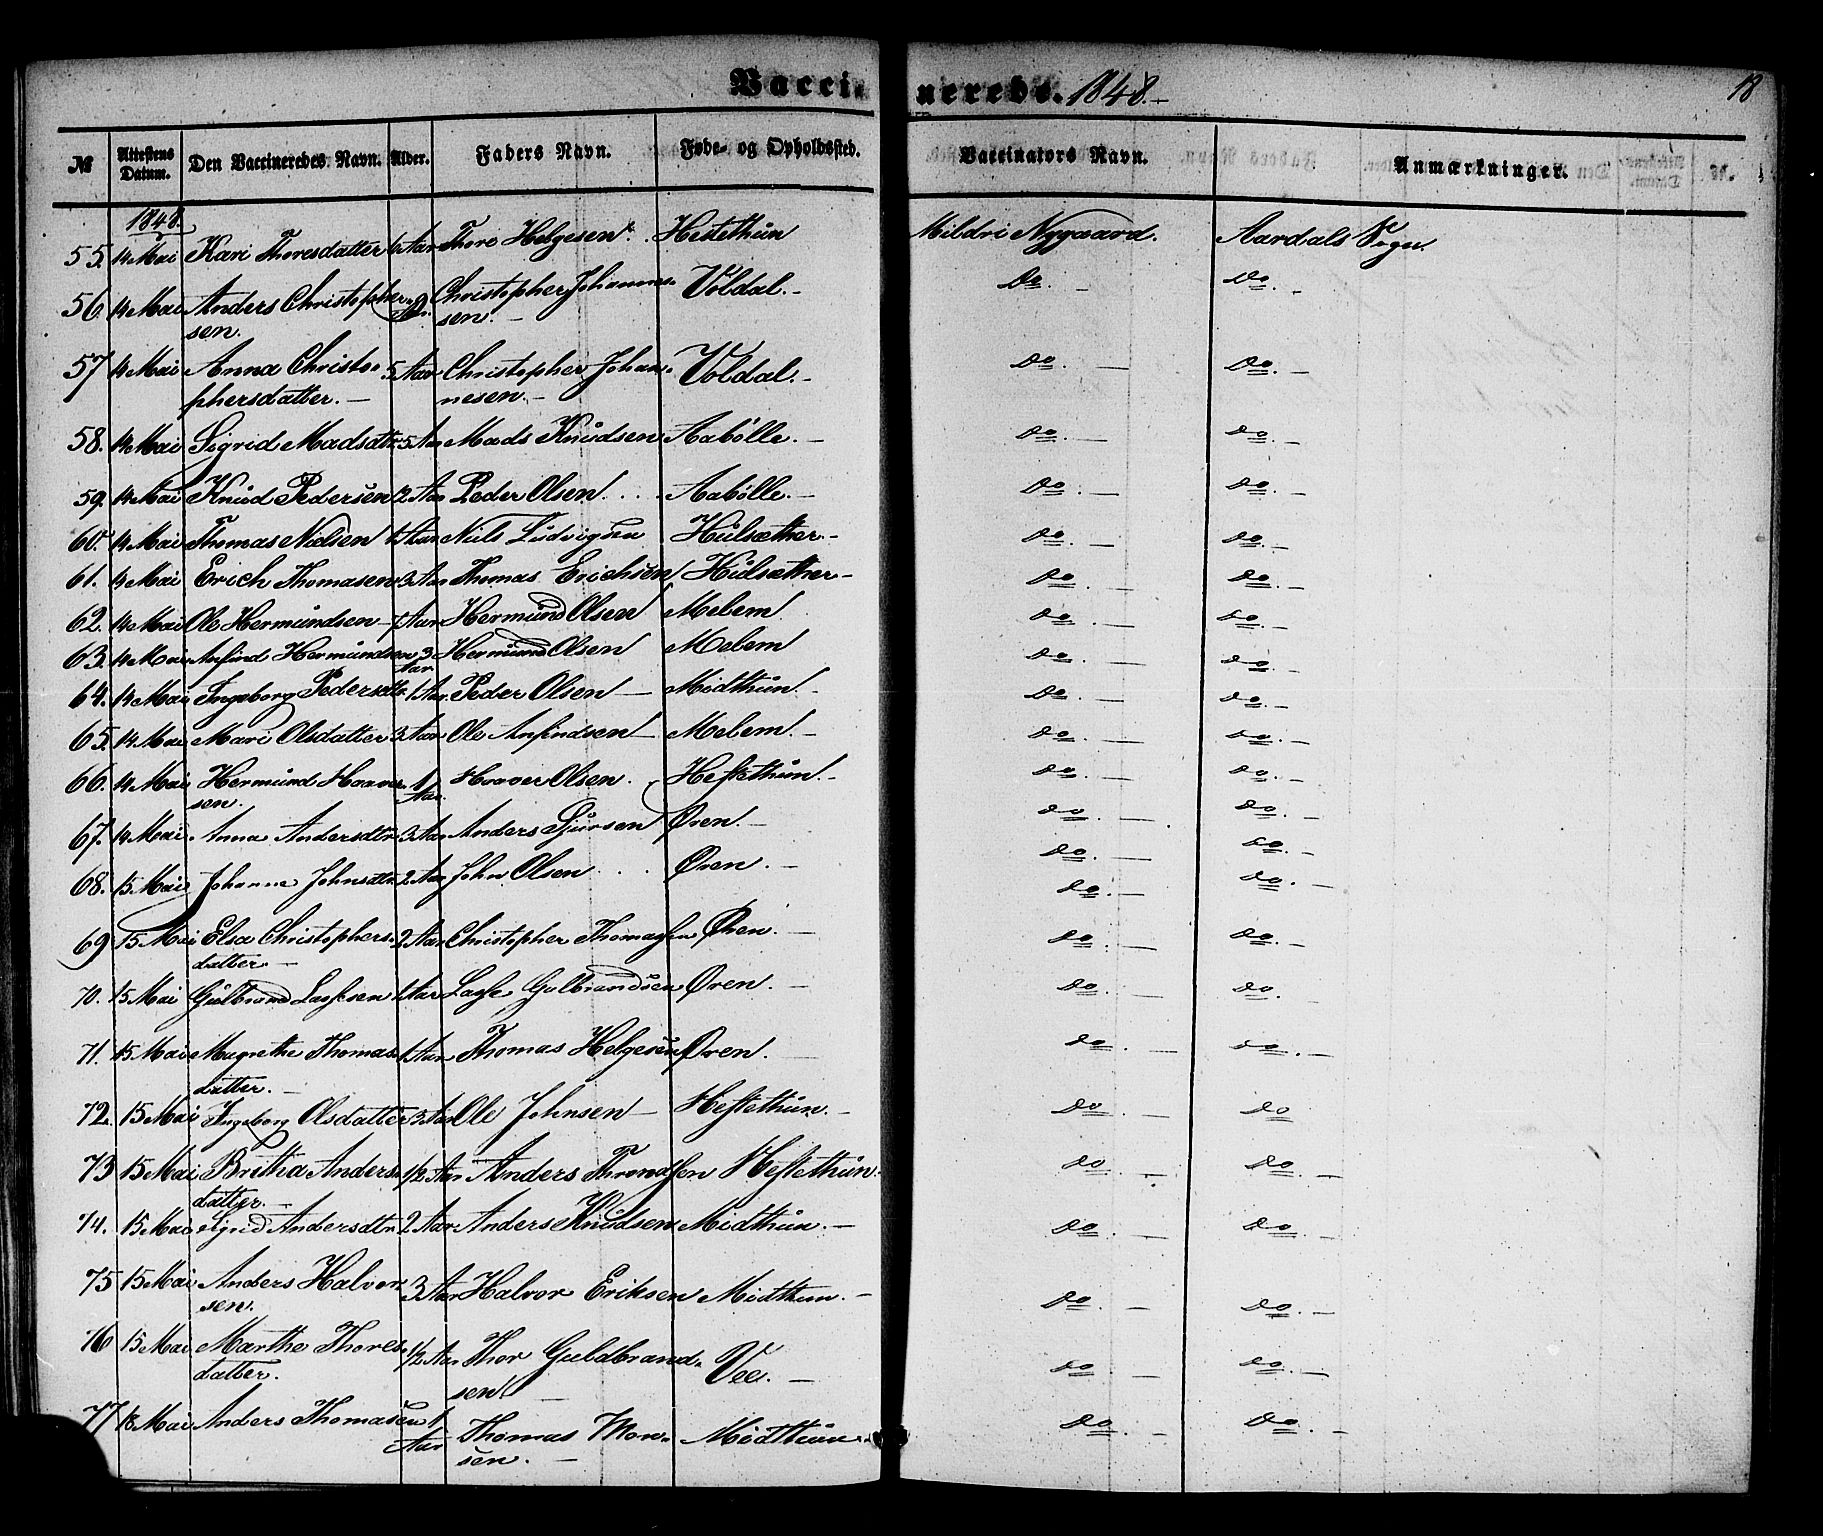 Vacci- nerede. 1848.- 18
№ Attestens Datum. Den Vaccineredes Navn. Alder. Faders Navn. Føde- og Opholdssted. Vaccinators Navn. Anmærkninger.
1848.
55. 14 Mai Kari Thoresdatter Aar Thore Helgesen. Hestethun Mildri Nygaard. Aardals Sogn.
56. 14 Mai Anders Christopher- Christopher Johannes- Voldal.- Do. - Do. -
sen. sen. -
57 14 Mai Anna Christo- 5 Aar Christopher Johan- Voldal.- Do. - Do. -
phersdatter. - nesen. -
58. 14 Mai Sigrid Madsdtr. 5 Aar Mads Knudsen Aabølle. - do. - do. -
59. 14 Mai Knud Pedersen 2 Aar Peder Olsen. . . . Aabølle. - do. - do. -
60. 14 Mai Thomas Nielsen 1 Aar Niels Ludvigsen Hulsæther.- do. - do. -
61. 14 Mai Erich Thomasen 3 Aar Thomas Erichsen Hulsæther- do. - do. -
62. 14 Mai Ole Hermundsen - 7 Aar Hermund Olsen Melem do. - do. -
63. 14 Mai Anfind Hermundsen 3 Aar Hermund Olsen Melem do. - do. -
64. 14 Mai Ingeborg Pedersdtr 1 Aar Peder Olsen - Midthun. - do. - do. -
65. 14 Mai Mari Olsdatter 3 Aar Ole Anfindsen - Melem. - do. - do. -
66. 14 Mai Hermund Haavor- 1 Aar. Haavor Olsen. Hestethun. - do. - do. -
sen.
67. 14 Mai Anna Andersdtr 3 Aar Anders Sjursen Øren. - do. - do. -
68. 15 Mai Johanne Johnsdtr 2 Aar John Olsen . . . Øren. - do. - do. -
69 15 Mai Elsa Christophers- 2 Aar Christopher Thomassen Øren. - do. - do. -
datter. -
70. 15 Mai Gulbrand Lassesen 1 Aar Lasse Gulbrandsen Øren. - do. - do.
71. 15 Mai Magrethe Thomas- 1 Aar Thomas Helgesen Øren. do. - do. -
datter. -
72. 15 Mai Ingeborg Olsdatter 3 Aar Ole Johnsen - Hestethun. - do. - do
73 15 Mai Britha Anders- 1/2 Aar Anders Throndsen Hestethun. do. - do. -
datter. -
74. 15 Mai Sigrid Andersdtr. 2 Aar Anders Knudsen Midthun. - do. - do. -
75 15 Mai Anders Halvor- 3 Aar Halvor Eriksen Midthun. - do. - do. -
sen.
76 15 Mai Marthe Thores- 1/2 Aar Thor Guldbrand- Vee. - do. - do. -
datter. sen. -
77 18 Mai Anders Thomasen 1 Aar Thomas Mon- Midthun. - do. - do. -
sen. -